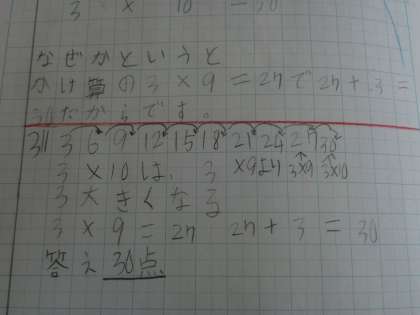 3 × 10 = 30
なぜかというと
かけ算の3×9=27で27+3=
30だからです。
3 6 9 12 15 18 21 24 27 30
3×10は、3×9より 3×9 3×10
3大きくなる
3×9=27 27+3=30
答え 30点